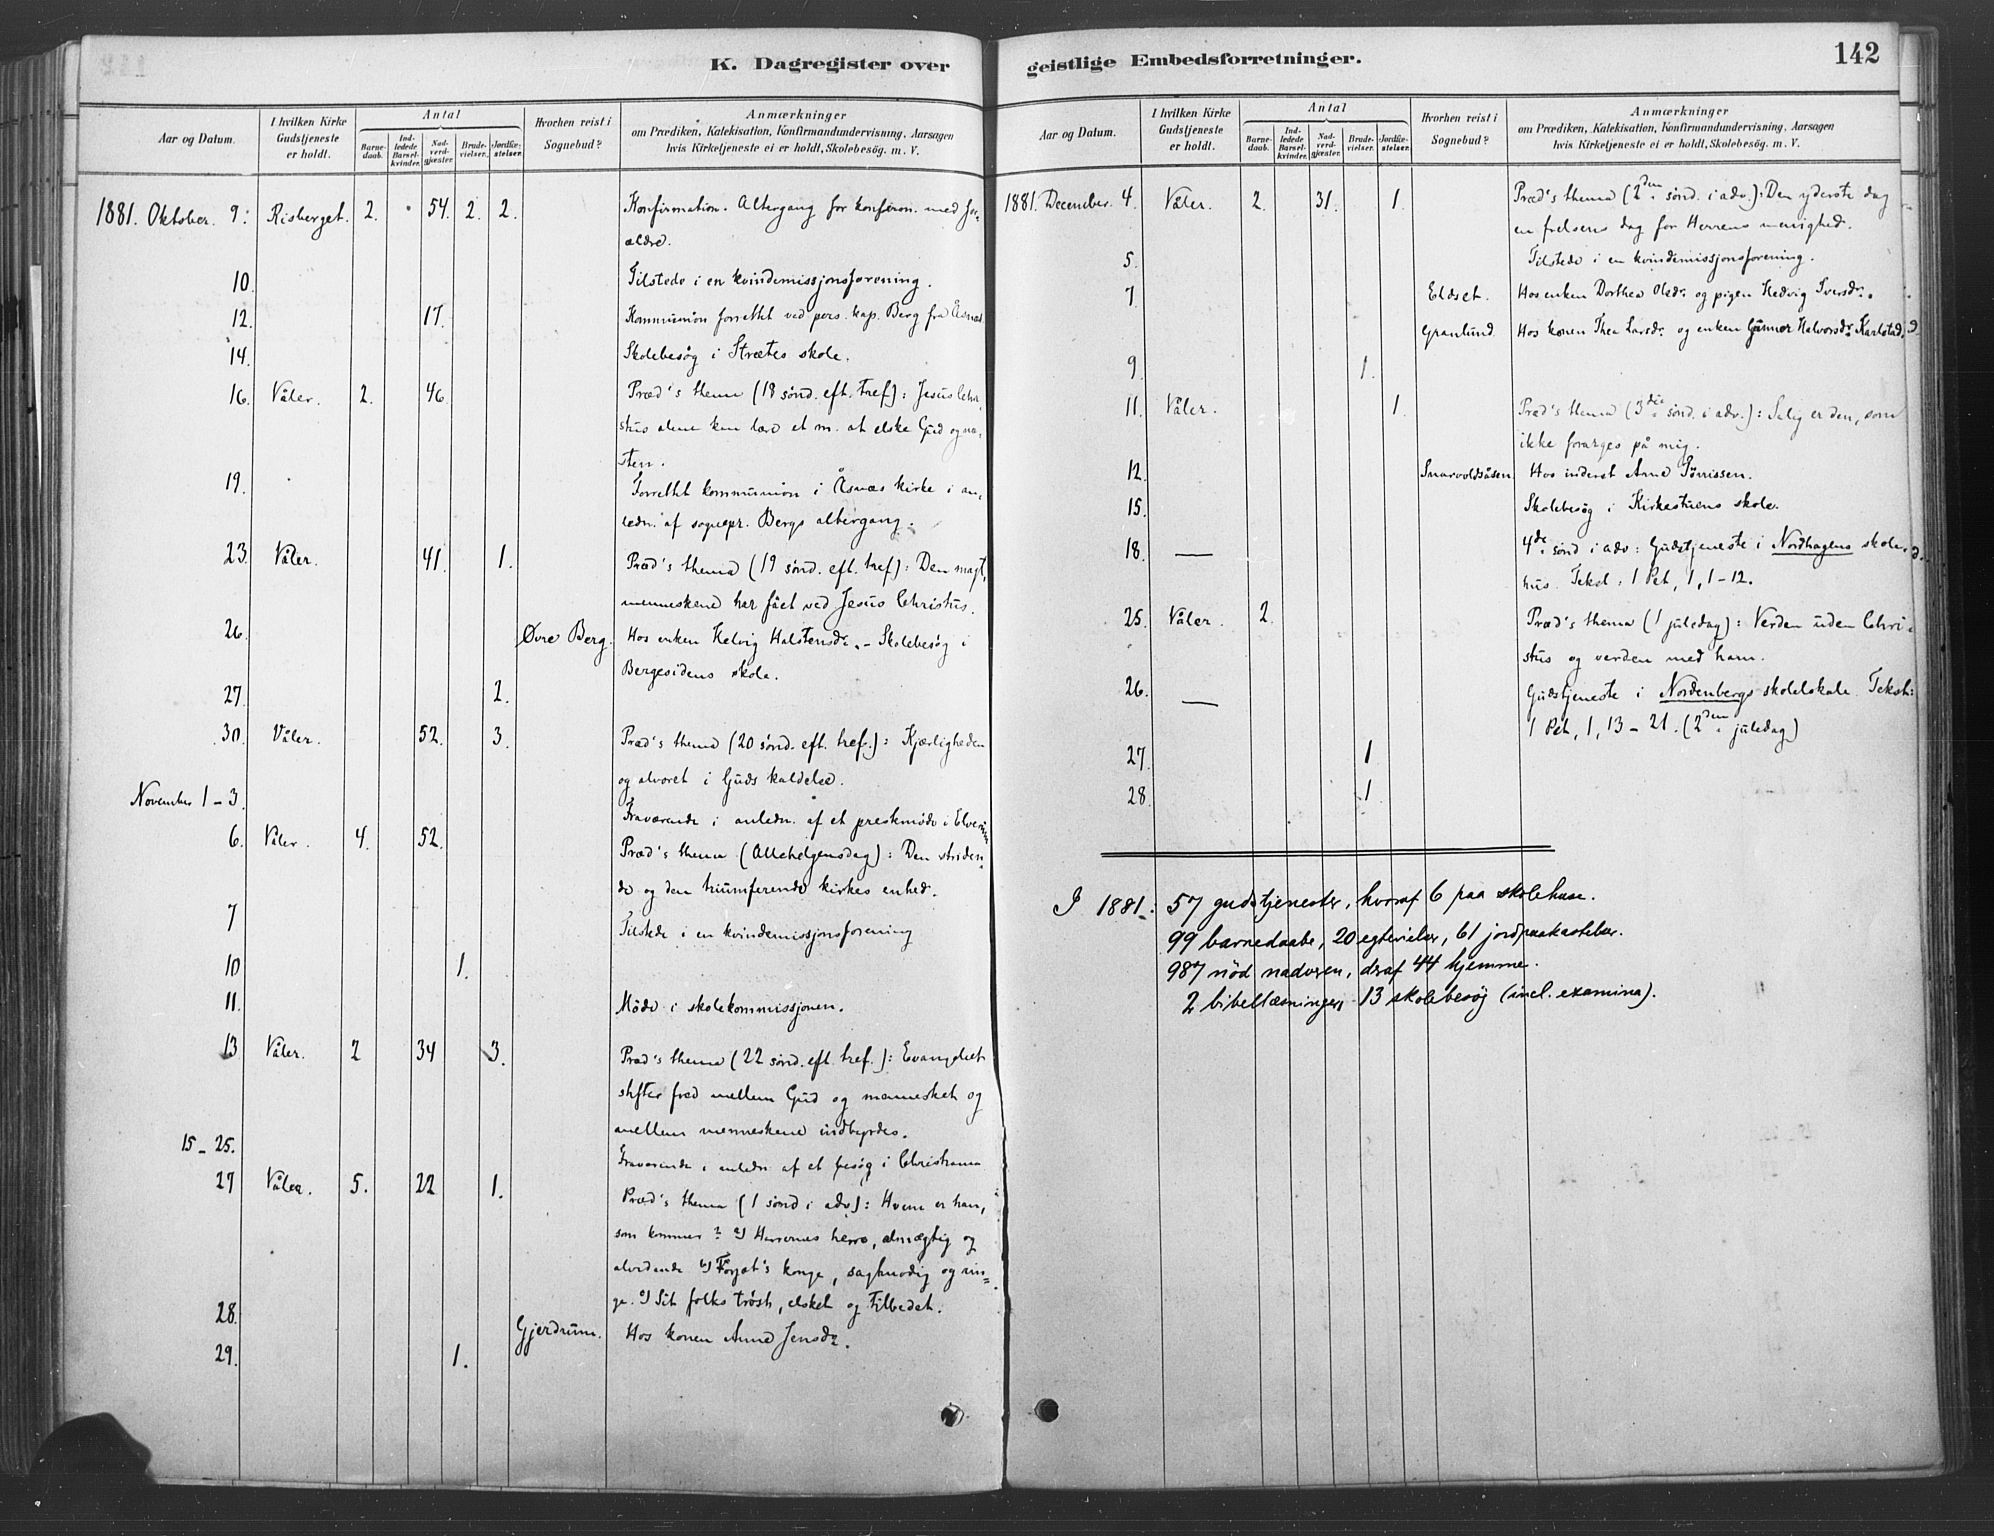 K. Dagregister over
Aar og Datum.
I hvilken Kirke Gudstjeneste er holdt.
Antal
Barnedaab.
Indledede Barselkvinder.
Nadverdgjæster.
Brudevielser.
Jordfæstelser.
Hvorhen reist i Sognebud?
Anmærkninger
om Prædiken, Katekisation, Konfirmandundervisning. Aarsagen
hvis Kirketjeneste ei er holdt, Skolebesøg. m. V.
1881. Oktober. 9. Risberget. 2. 54. 2. 2. Konfirmation. Altergang for konfirm. med for-
ældre.
10. Tilstede i en kvindemissjonsforening.
12. 17. Kommunion forrettet ved pers. kap. Berg fra Åsnes
14. Skolebesøg i Strætes skole.
16. Våler. 2. 46. Præd's thema (18 sønd. eft. tref): Jesus Chri-
stus alene kan lære et m. at elske Gud og næ-
sten.
19. Forrettet kommunion i Åsnæs kirke i an-
ledn. af sognepr. Bergs altergang.
23. Våler. 41. 1. Præd's thema (19 sønd. eft. tref): Den magt,
menneskene har fået ved Jesus Christus.
26. Øvre Berg. Hos enken Helvig Halstensdr. - Skolebesøg i
Bergesidens skole.
27. 2.
30. Våler. 52. 3. Præd's thema (20 sønd. eft. tref.): Kjærligheden
og alvoret i Guds kaldelse.
November 1-3. Fraværende i anledn. af et prestemøde i Elverum
6. Våler. 4. 52. Præd's thema (Allehelgensdag): Den striden-
de og den triumferende kirkes enhed.
7 Tilstede i en kvindemissjonsforening
10 1.
11. Møde i skolekommissjonen.
13 Våler. 2 34 3. Præd's thema (22 sønd. eft. tref.): Evangeliet
stifter fred mellem Gud og mennesket og
mellem menneskene indbyrdes.
15-25. Fraværende i anledn. af et besøg i Christiania
27 Våler. 5. 22 1. Præd's thema (1 sønd i adv): Hvem er han,
som kommer? a) Herrernes herre, almægtig og
alvidende b) konge, sagtmodig og rin-
ge. c) Sit folks trøst, elsket og tilbedet.
28. Gjerdrum. Hos konen Anne Jensdr.
29. 1.
geistlige Embedsforretninger.
142
Aar og Datum.
I hvilken Kirke Gudstjeneste er holdt.
Antal
Barnedaab.
Indledede Barselkvinder.
Nadverdgjæster.
Brudevielser.
Jordfæstelser.
Hvorhen reist i Sognebud?
Anmærkninger
om Prædiken, Katekisation, Konfirmandundervisning. Aarsagen
hvis Kirketjeneste ei er holdt, Skolebesøg. m. V.
1881. December. 4. Våler. 2. 31. 1. Præd's thema (2den sønd. i adv.): Den yderste dag
en frelsens dag for Herrens menighed.
5. Tilstede i en kvindemissjonsforening.
7 Eldset. Hos enken Dorthea Olsdr. og pigen Hedvig Iversdr.
Granlund. Hos konen Thea Larsdr. og enken Gunnor Halvorsdr. Karlstad.
9. 1.
11. Våler. 1. Præd's thema (3die sønd. i adv.): Salig er den, som
ikke forarges på mig.
12. Snarvoldsåsen. Hos inderst Arne Tørrissen.
15. Skolebesøg i Kirkestuens skole.
18. — 4de sønd i adv: Gudstjeneste i Nordhagens skole-
hus. Tekst: 1 Pet, 1, 1-12.
25. Våler. 2. Præd's thema (1 juledag): Verden uden Chri-
stus og verden med ham.
26. — Gudstjeneste i Nordenbergs skolelokale. Tekst:
1 Pet, 1, 13-21. (2den juledag)
27. 1
28. 1
I 1881: 57 gudstjenester, hvoraf 6 paa skolehuse.
99 barnedaabe, 20 egtevielser, 61 jordpaakastelser.
987 nød nadveren, deraf 44 hjemme.
2 bibellæsninger, 13 skolebesøg (incl. examina).